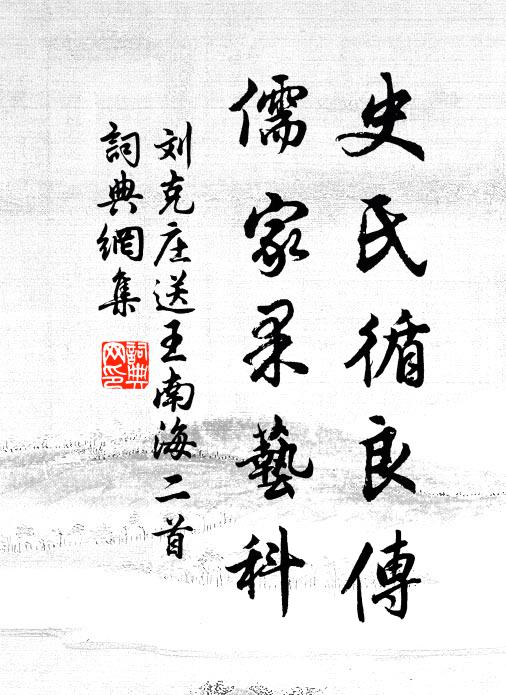 史氏循良傳
儒家果藝科
刘克庄送王南海二首
詞典網集
詞典
网印